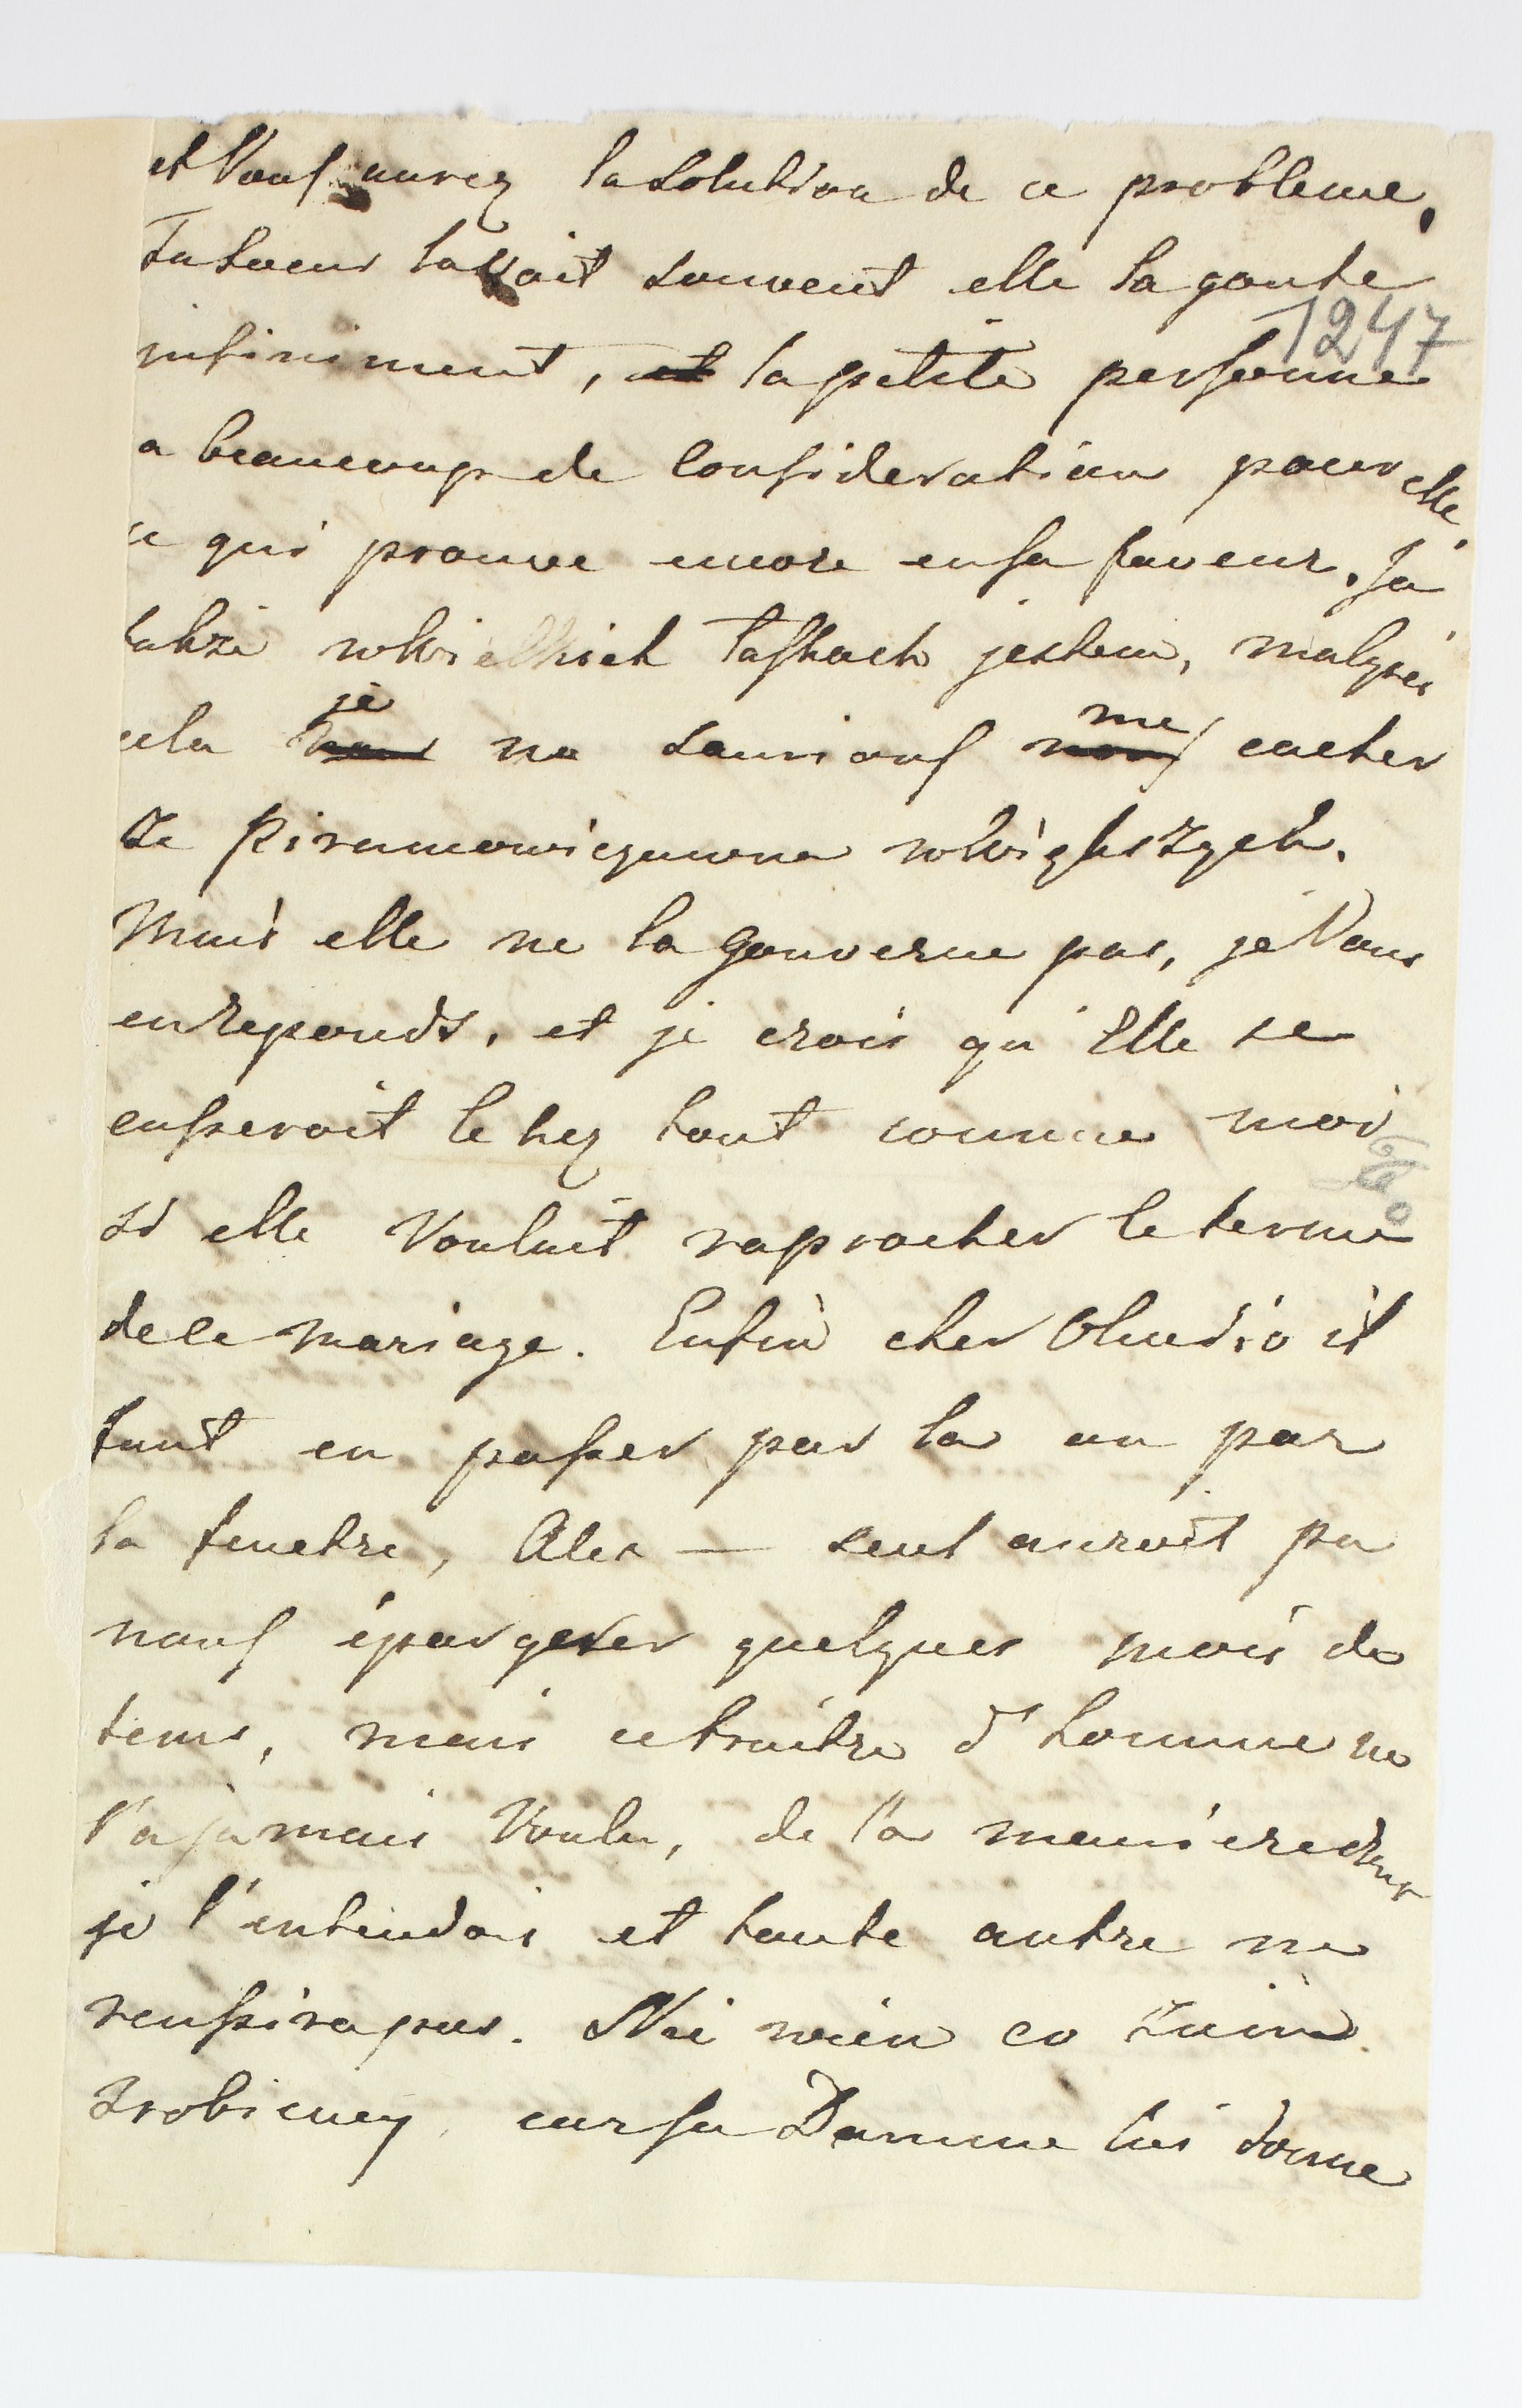 et Vous aurez la solution de ce probleme.
Ta soeur la voit souvent elle la goute
1247
infiniment, et la petite personne
a beaucoup de consideration pour elle,
ce qui prouve encore en sa faveur. Ja
takze w wielkich laskach jestem, malgrés
cela nous je ne saurions nous me cacher
ze Piramowiczowna w większych.
Mais elle ne la gouverne pas, je Vous
en reponds, et je crois qu'Elle se
casseroit le nez tout comme moi
si elle Vouluit raprocher le terme
de ce mariage. Enfin cher Oludio il
faut en passer par la ou par
la fenetre, Alex — seul auroit pu
nous épargner quelques mois de
tems, mais ce traitre d'homme ne
l'a jamais Voulu, de la maniere dont
je l'entendois et toute autre ne
reussira pas. Nie wiem co z nim
zrobiemy, car sa Damme lui donne